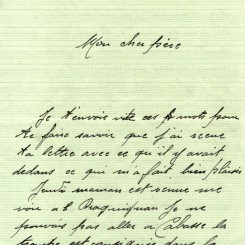 Mon cher frère
Je t'envoie vite ces mots pour
te faire savoir que j'ai reçue
ta lettre avec ce qu'il y avait
dedans ce qui m'a fait bien plaisir
Jeudi maman est venue me
voir a Draguignan Je ne
pouvais pas aller a Cabasse la
est consignée dans la